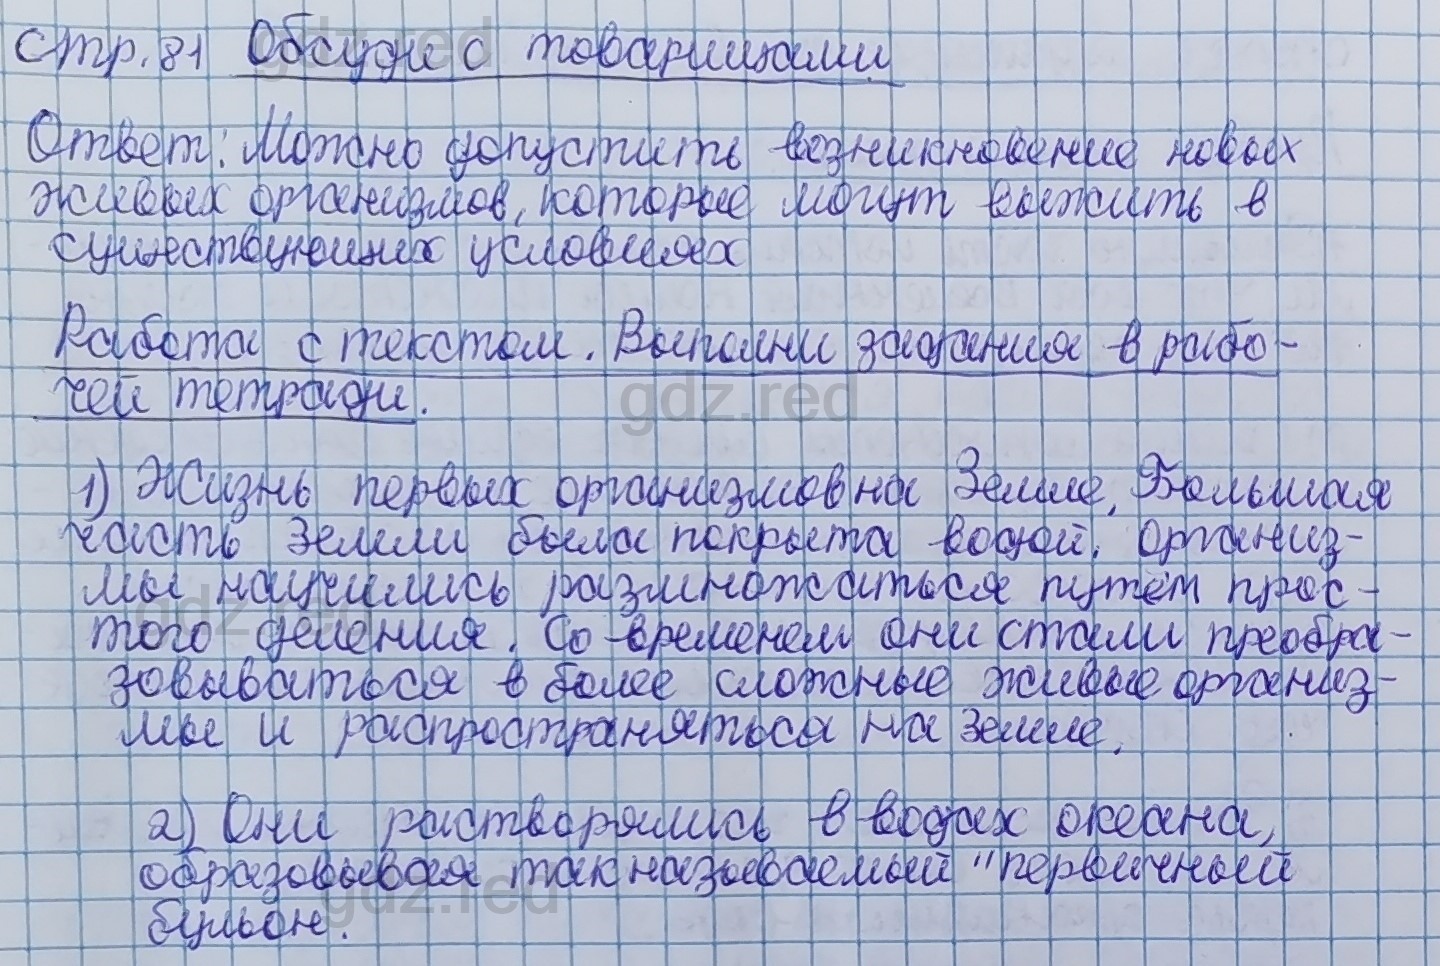 стр. 81 Обсуди с товарищами
Ответ: Можно допустить возникновение новых
живых организмов, которые могут выжить в
существующих условиях
Работа с текстом. Выполни задания в рабо-
чей тетради.
1) Жизнь первых организмов на Земле. Большая
часть Земли была покрыта водой. Организ-
мы научились размножаться путём прос-
того деления. Со временем они стали преобра-
зовываться в более сложные живые организ-
мы и распространяться на Земле.
2) Они растворялись в водах океана,
образовывая так называемый "первичный
бульон.
gdz.red
gdz.red
gdz.red
gdz.red